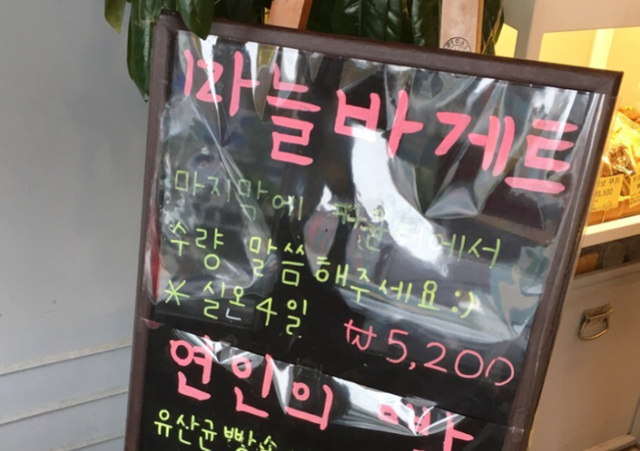 마늘바게트
마지막에 카운터에서
수량 말씀해주세요:)
* 실온4일
₩5,200
연인의
유산균빵속